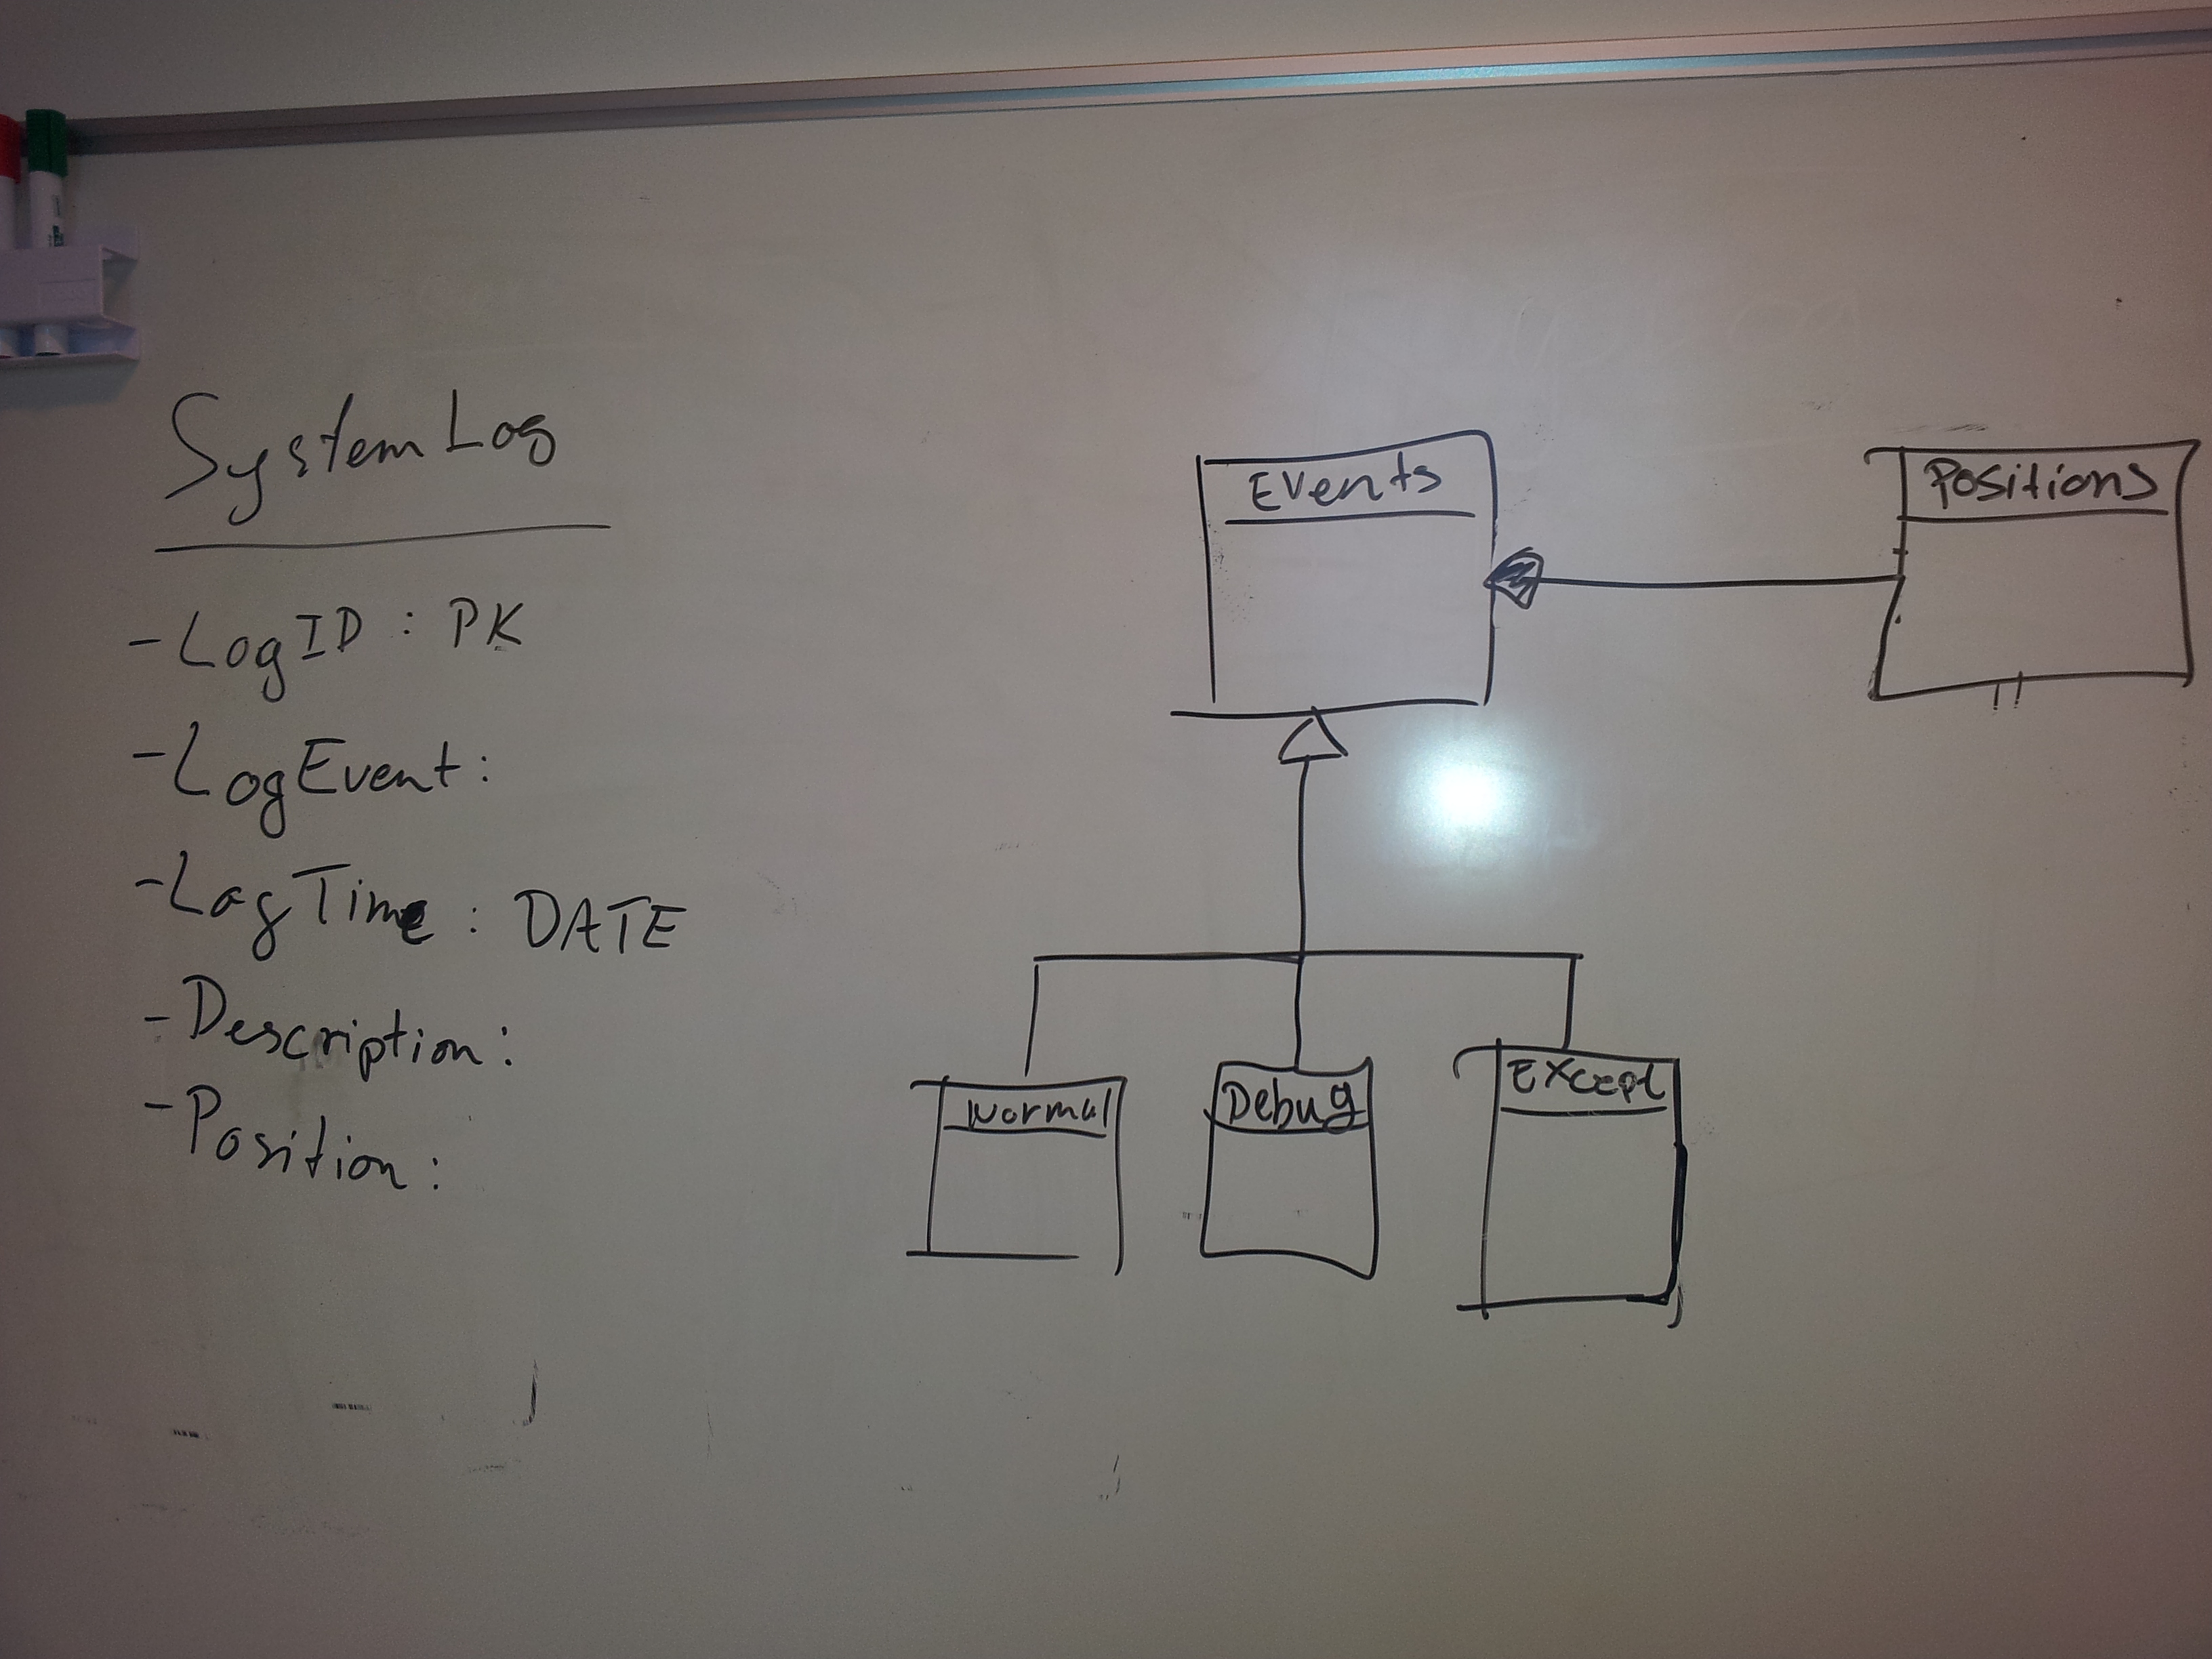 SystemLog
- LogID : PK
- LogEvent :
- LogTime : DATE
- Description :
- Position :
Events
Positions
Normal
Debug
Except